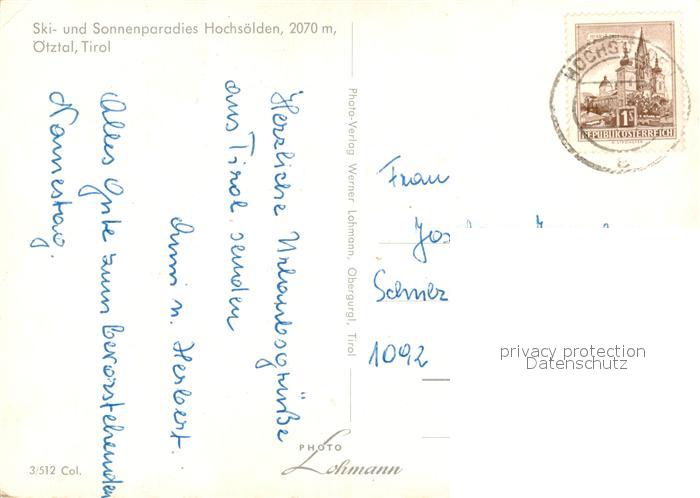 Ski- und Sonnenparadies Hochsölden, 2070 m,
Ötztal, Tirol
Herzliche Urlaubsgrüße
aus Tirol senden
u. Herbert.
Alles Gute zum bevorstehenden
Namestag.
Photo-Verlag Werner Lohmann, Obergurgl, Tirol
1 S
REPUBLIK ÖSTERREICH
Frau
1092
privacy protection
Datenschutz
PHOTO
Lohmann
3/512 Col.